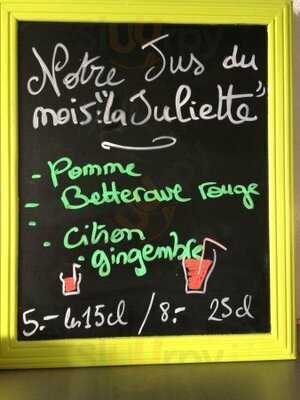 Notre Jus du
mois: "la Juliette"
- Pomme
- Betterave rouge
-
- Citron
- gingembre
5.- les 15cl / 8.- 25cl